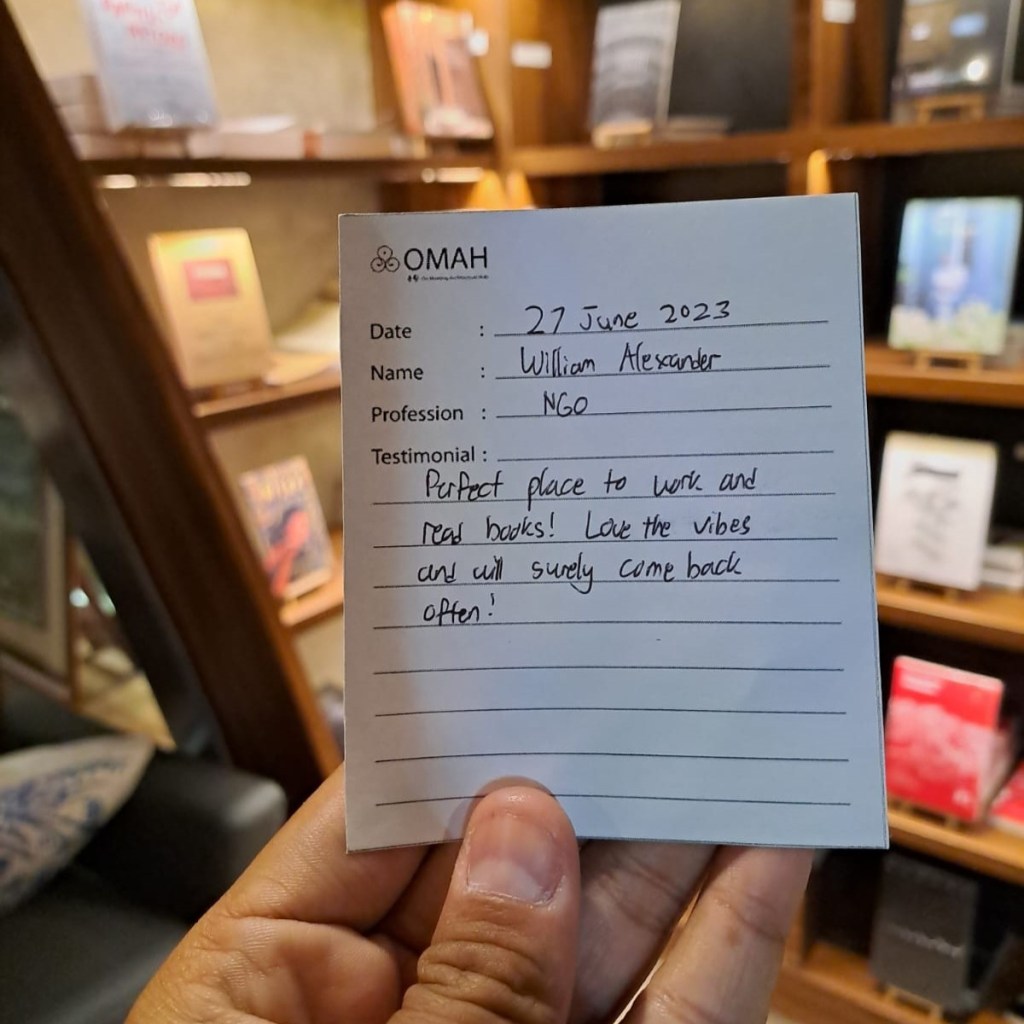 OMAH
Date : 27 June 2023
Name : William Alexander
Profession : NGO
Testimonial :
Perfect place to work and
read books! Love the vibes
and will surely come back
often!